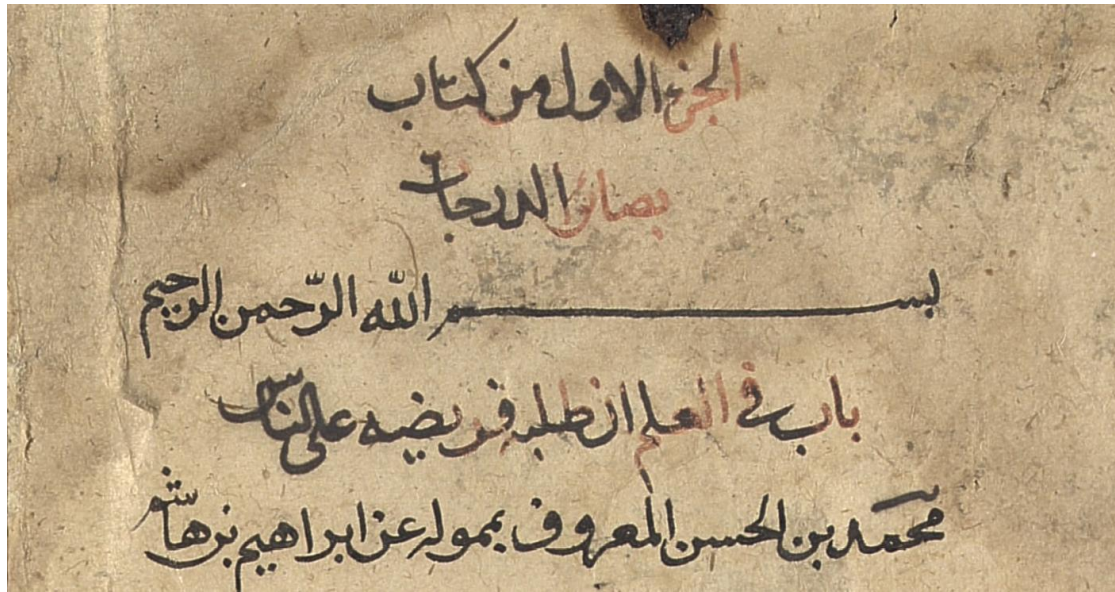 الجزء الاول من كتاب
بصائر الدرجات
بسم الله الرّحمن الرحيم
باب في العلم ان طلبه فريضه على الناس
محمد بن الحسن المعروف بمموله عن ابراهيم بن هاشم